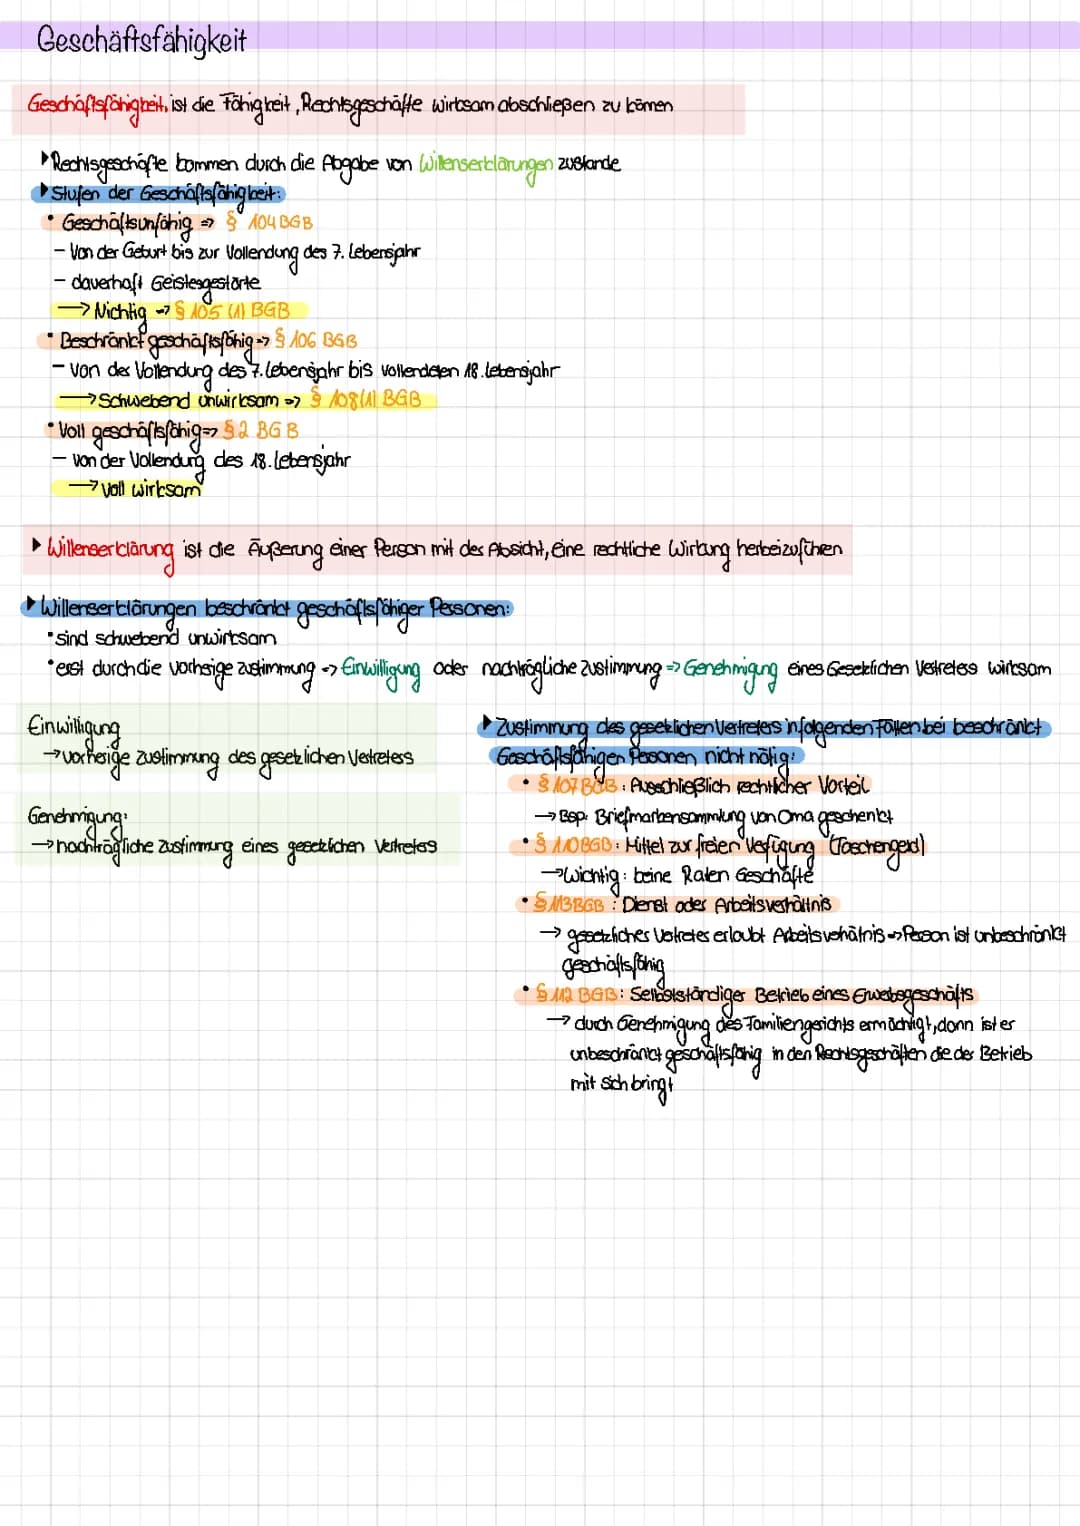 Geschäftsfähigkeit
Geschäftsfähigkeit, ist die Fähigkeit, Rechtsgeschäfte wirksam abschließen zu können
▸ Rechtsgeschäfte kommen durch die Abgabe von Willenserklärungen zustande
▸ Stufen der Geschäftsfähigkeit:
• Geschäftsunfähig => § 104 BGB
- Von der Geburt bis zur Vollendung des 7. Lebensjahr
- dauerhaft Geistesgestörte
→ Nichtig => § 105 (1) BGB
• Beschränkt geschäftsfähig => § 106 BGB
- Von der Vollendung des 7. Lebensjahr bis vollendeten 18. Lebensjahr
→ Schwebend unwirksam => § 108 (1) BGB
• Voll geschäftsfähig => § 2 BGB
- Von der Vollendung des 18. Lebensjahr
→ Voll wirksam
▸ Willenserklärung ist die Äußerung einer Person mit der Absicht, eine rechtliche Wirkung herbeizuführen
▸ Willenserklärungen beschränkt geschäftsfähiger Personen:
• sind schwebend unwirksam
• erst durch die vorherige Zustimmung => Einwilligung oder nachträgliche Zustimmung => Genehmigung eines Gesetzlichen Vertreters wirksam
Einwilligung
→ vorherige Zustimmung des gesetzlichen Vertreters
Genehmigung:
→ nachträgliche Zustimmung eines gesetzlichen Vertreters
▸ Zustimmung des gesetzlichen Vertreters in folgenden Fällen bei beschränkt
Geschäftsfähigen Personen nicht nötig:
• § 107 BGB: Ausschließlich rechtlicher Vorteil
→ Bsp: Briefmarkensammlung von Oma geschenkt
• § 110 BGB: Mittel zur freien Verfügung (Taschengeld)
→ Wichtig: keine Raten Geschäfte
• § 113 BGB: Dienst oder Arbeitsverhältnis
→ gesetzlicher Vertreter erlaubt Arbeitsverhältnis => Person ist unbeschränkt
geschäftsfähig
• § 112 BGB: Selbstständiger Betrieb eines Erwerbsgeschäfts
→ durch Genehmigung des Familiengerichts ermächtigt, dann ist er
unbeschränkt geschäftsfähig in den Rechtsgeschäften die der Betrieb
mit sich bringt